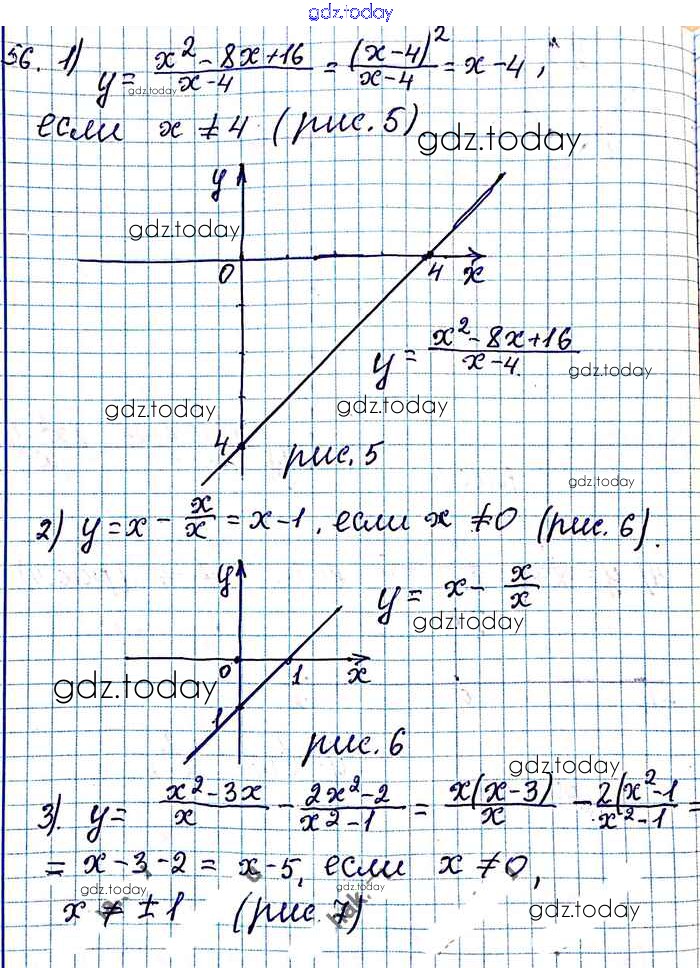 gdz.today
56. 1) y = \frac{x^2 - 8x + 16}{x - 4} = \frac{(x - 4)^2}{x - 4} = x - 4,
gdz.today
если x ≠ 4 (рис. 5)
gdz.today
y
gdz.today
0 4 x
y = \frac{x^2 - 8x + 16}{x - 4}
gdz.today
gdz.today gdz.today
4
рис. 5
gdz.today
2) y = x - \frac{x}{x} = x - 1, если x ≠ 0 (рис. 6).
y
y = x - \frac{x}{x}
gdz.today
0 1 x
gdz.today
1
рис. 6
gdz.today
3). y = \frac{x^2 - 3x}{x} - \frac{2x^2 - 2}{x^2 - 1} = \frac{x(x - 3)}{x} - \frac{2(x^2 - 1}{x^2 - 1} =
= x - 3 - 2 = x - 5, если x ≠ 0,
gdz.today gdz.today
x ≠ ±1 (рис. 7)
gdz.today